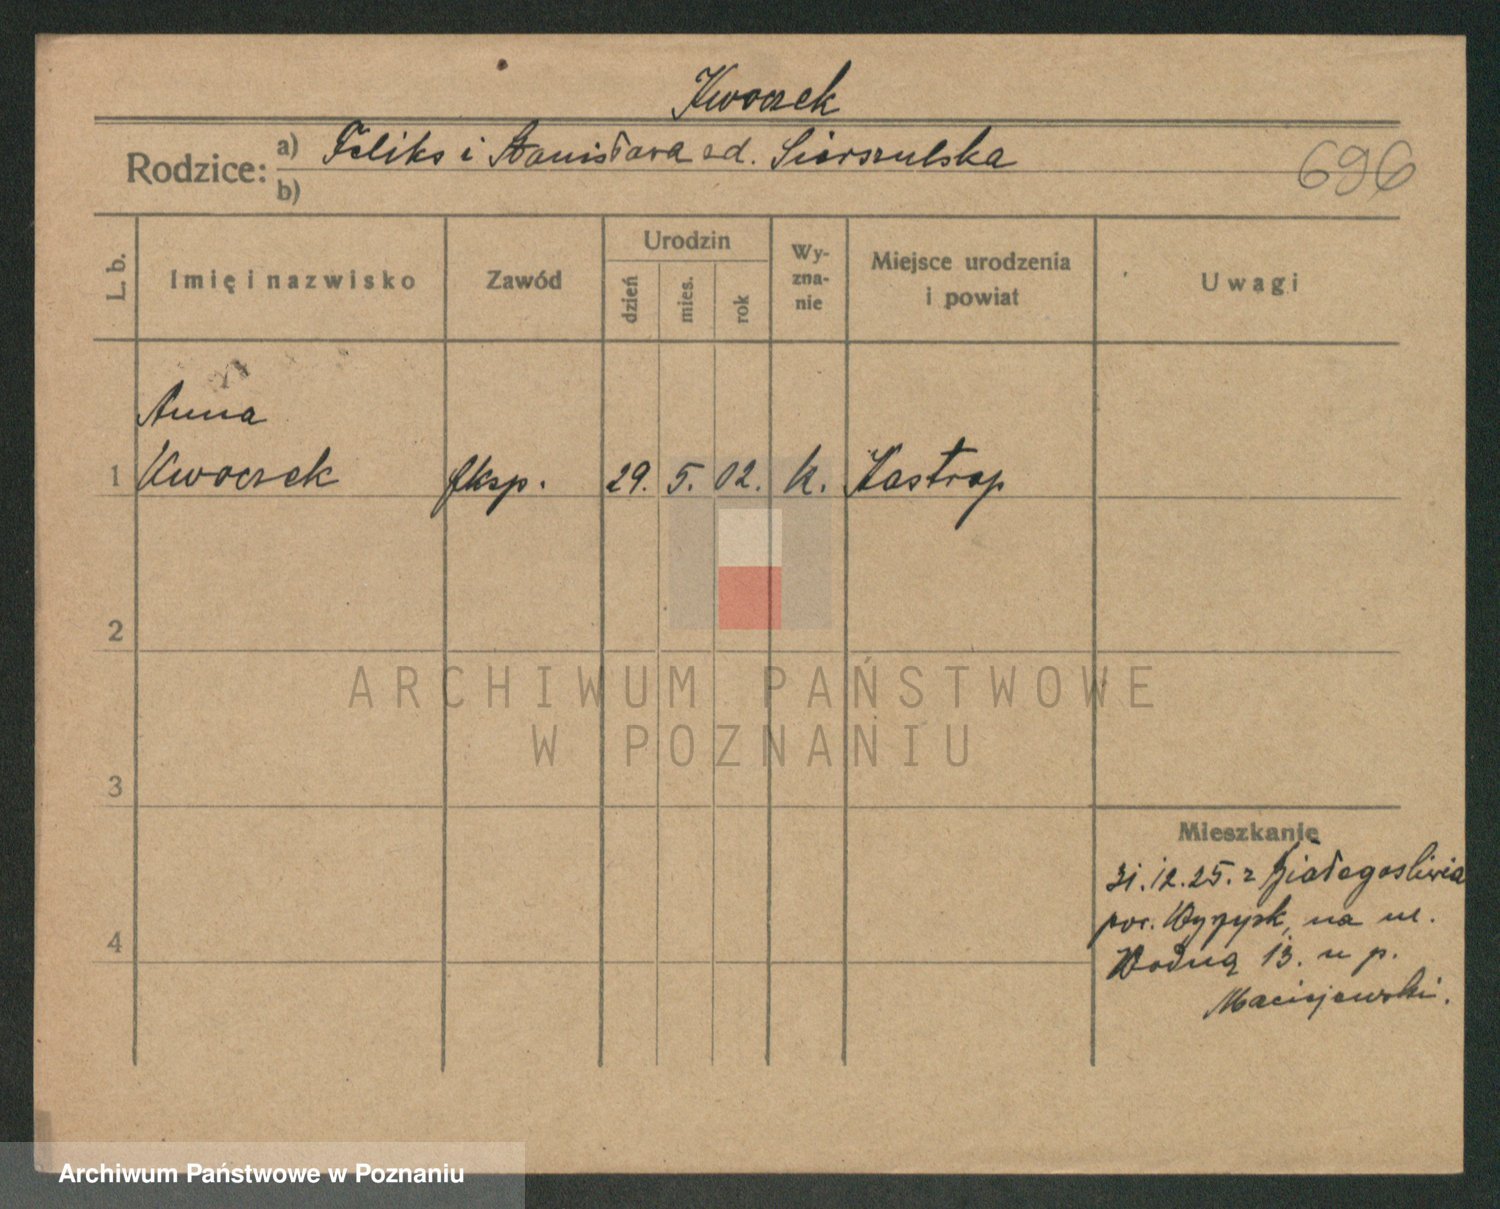 Kwoczek
Rodzice: a) Feliks i Stanisława z d. Sierszulska
b)
696
L. b.
Imię i nazwisko
Zawód
Urodzin
dzień
mies.
rok
Wy-
zna-
nie
Miejsce urodzenia
i powiat
Uwagi
Anna
1 Kwoczek eksp. 29. 5. 02. k. Kastrop
2
3
4
Mieszkanie
31.12.25. z Białegośliwia
pow. Wyrzysk, na ul.
Wodną 13. u p.
Maciejewski.
ARCHIWUM PAŃSTWOWE
W POZNANIU
Archiwum Państwowe w Poznaniu